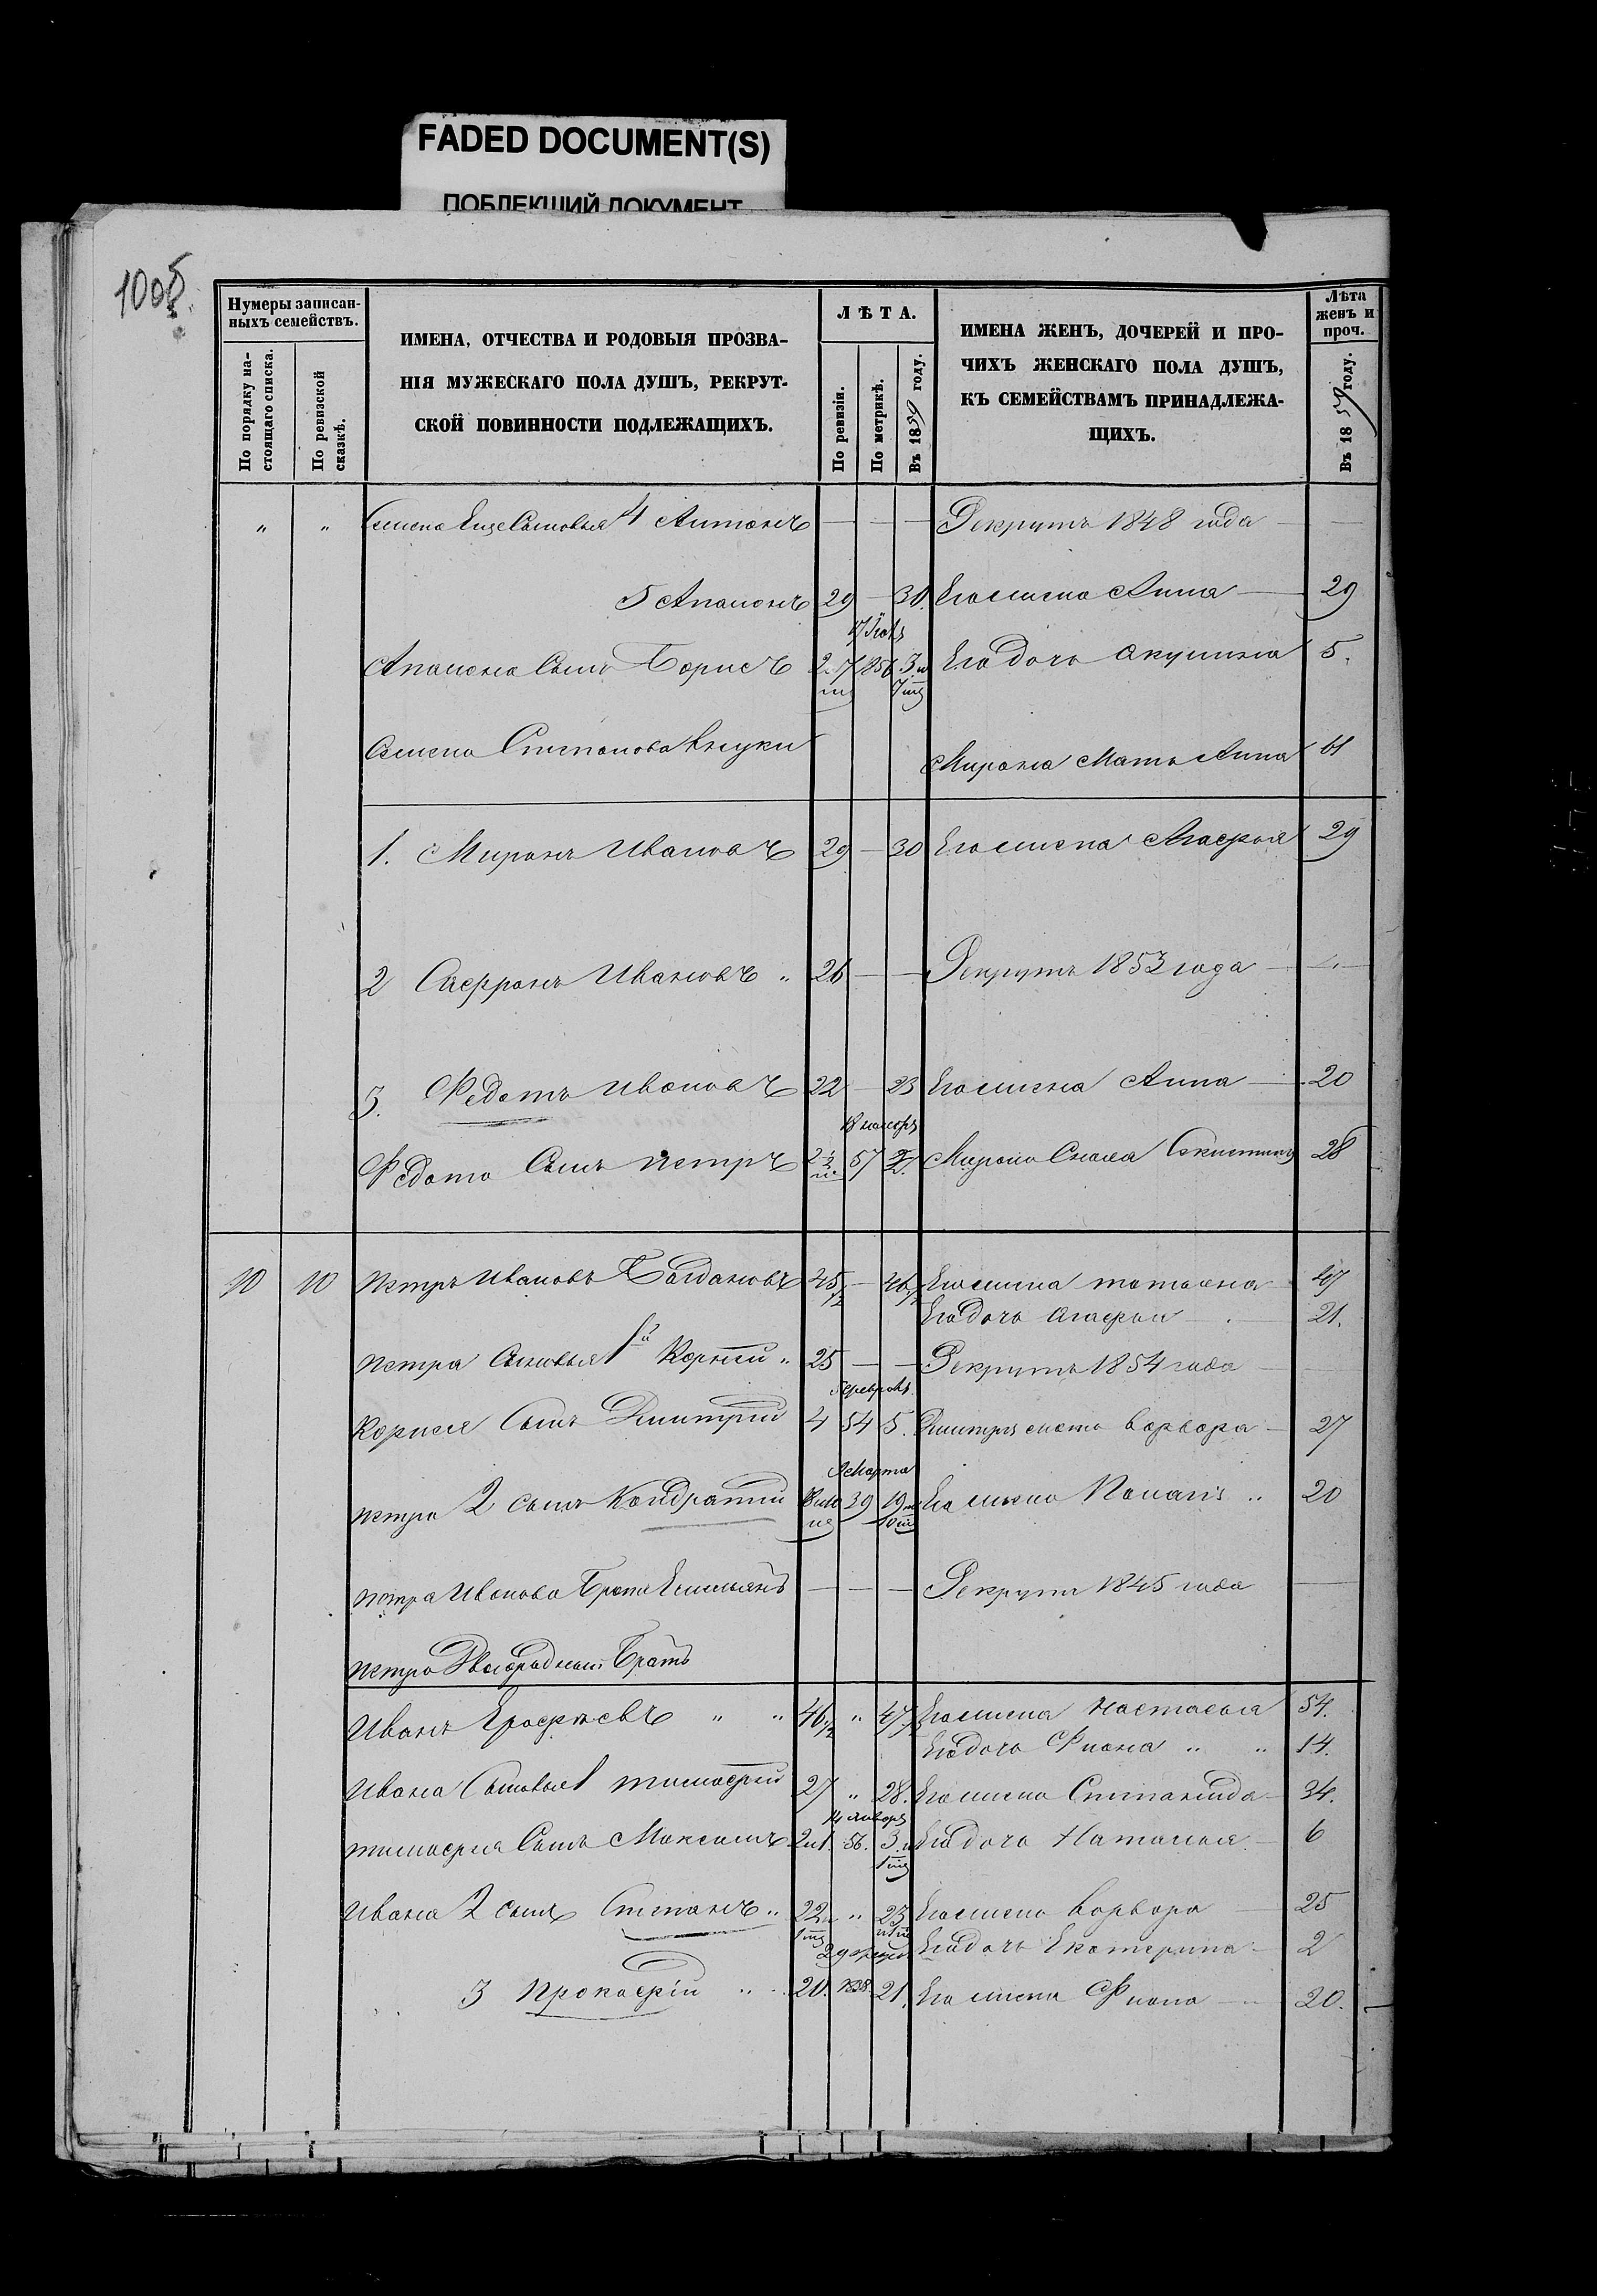 FADED DOCUMENT(S)
ПОБЛЕКШИЙ ДОКУМЕНТ
1005
Нумеры записан-
ныхъ семействъ.
По порядку на-
стоящаго списка.
По ревизской
сказкѣ.
ИМЕНА, ОТЧЕСТВА И РОДОВЫЯ ПРОЗВА-
НІЯ МУЖЕСКАГО ПОЛА ДУШЪ, РЕКРУТ-
СКОЙ ПОВИННОСТИ ПОДЛЕЖАЩИХЪ.
ЛѢТА.
По ревизіи.
По метрикѣ.
Въ 1859 году.
ИМЕНА ЖЕНЪ, ДОЧЕРЕЙ И ПРО-
ЧИХЪ ЖЕНСКАГО ПОЛА ДУШЪ,
КЪ СЕМЕЙСТВАМЪ ПРИНАДЛЕЖА-
ЩИХЪ.
Лѣта
женъ и
проч.
Въ 1859 году.
" " Семена Еще Сыновья 4 Антонъ — — — Рекрутъ 1848 года —
5 Апалонъ 29 — 30 Его жена Анна — 29
Апалона Сынъ Борисъ 856 Его дочь Акулина 5.
Семена Степанова внуки Мирона Мать Анна 61
1. Миронъ Ивановъ 29 — 30 Его жена Агафья 29
2 Сафронъ Ивановъ " 26 — — Рекрутъ 1853 года —
3. Федотъ Ивановъ 22 — 23 Его жена Анна — 20
Федота Сынъ Петръ 57 Мирона 28
10 10 Петръ Ивановъ Богдановъ 45 1/2 — 46 1/2 Его жена Татьяна 47
Его дочь Агафья — 21.
Петра Сыновья 1й Корнѣй " 25 — — Рекрутъ 1854 года —
Корнея Сынъ Дмитрій 4 54 5. Дмитрія мать Варвара — 27
9 Марта
Петра 2 сынъ Кондратій 39 19 Его жена 20
Петра Иванова Братъ Емельянъ — — — Рекрутъ 1845 года —
Петра Двоюродный Братъ
Иванъ Ерофѣевъ " " 46 1/2 " 47 1/2 Его жена Настасья 54.
Его дочь Фиона " " 14.
Ивана Сыновья 1 Тимофей 27 " 28. Его жена Степанида 34.
14 Января
Тимофея Сынъ Максимъ 2 и 1 56. 3. и Его дочь Наталья — 6
Ивана 2 сынъ Степанъ " 22 " 23 Его жена Варвара — 25
Его дочь Екатерина — 2
3 Прокофій " 20. 838 21. Его жена Фиона — 20.